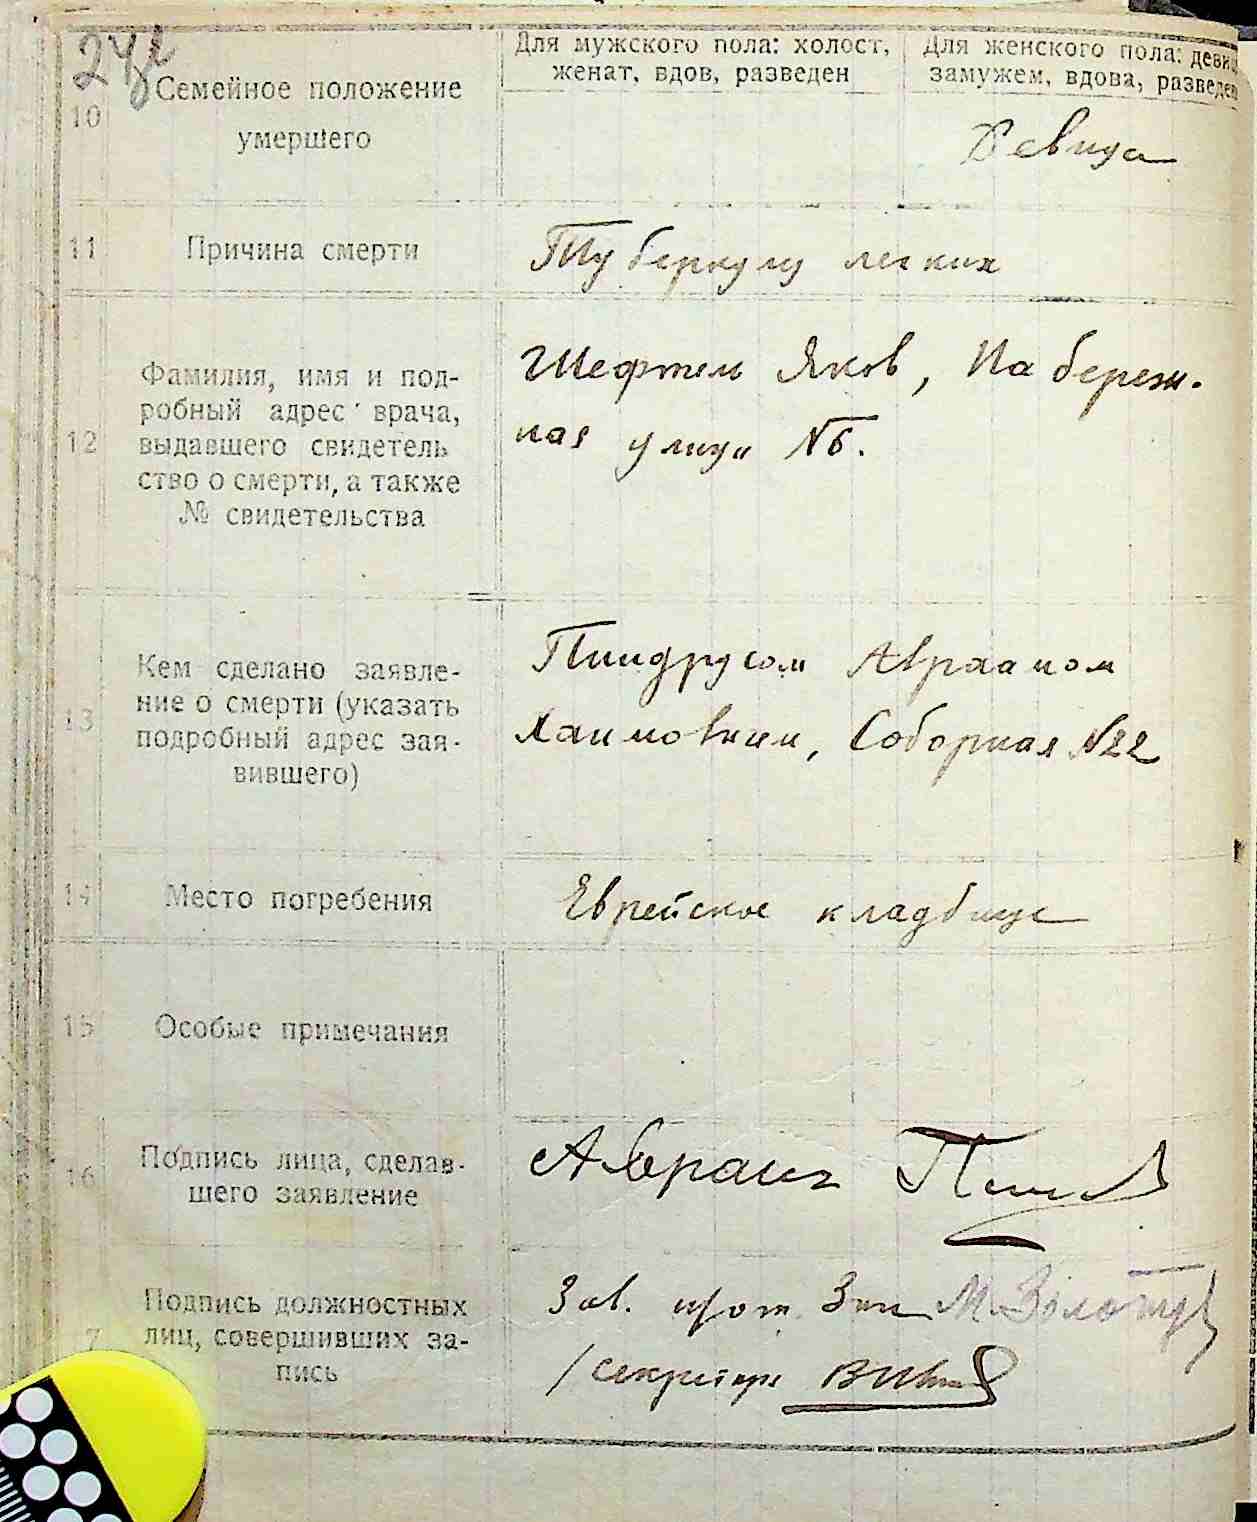 Для мужского пола: холост,
женат, вдов, разведен
Для женского пола: девица
замужем, вдова, разведен
10
Семейное положение
умершего
Девица
11
Причина смерти
Туберкулз легких
12
Фамилия, имя и под-
робный адрес врача,
выдавшего свидетель
ство о смерти, а также
№ свидетельства
Шефтель Яков, Набереж-
ная улица №6.
13
Кем сделано заявле-
ние о смерти (указать
подробный адрес зая-
вившего)
Пиндрусом Авраамом
Хаимовичем, Соборная №22
14
Место погребения
Еврейское кладбище
15
Особые примечания
16
Подпись лица, сделав-
шего заявление
Абрам
7
Подпись должностных
лиц, совершивших за-
пись
Зав.
М. Золот
/секретарь